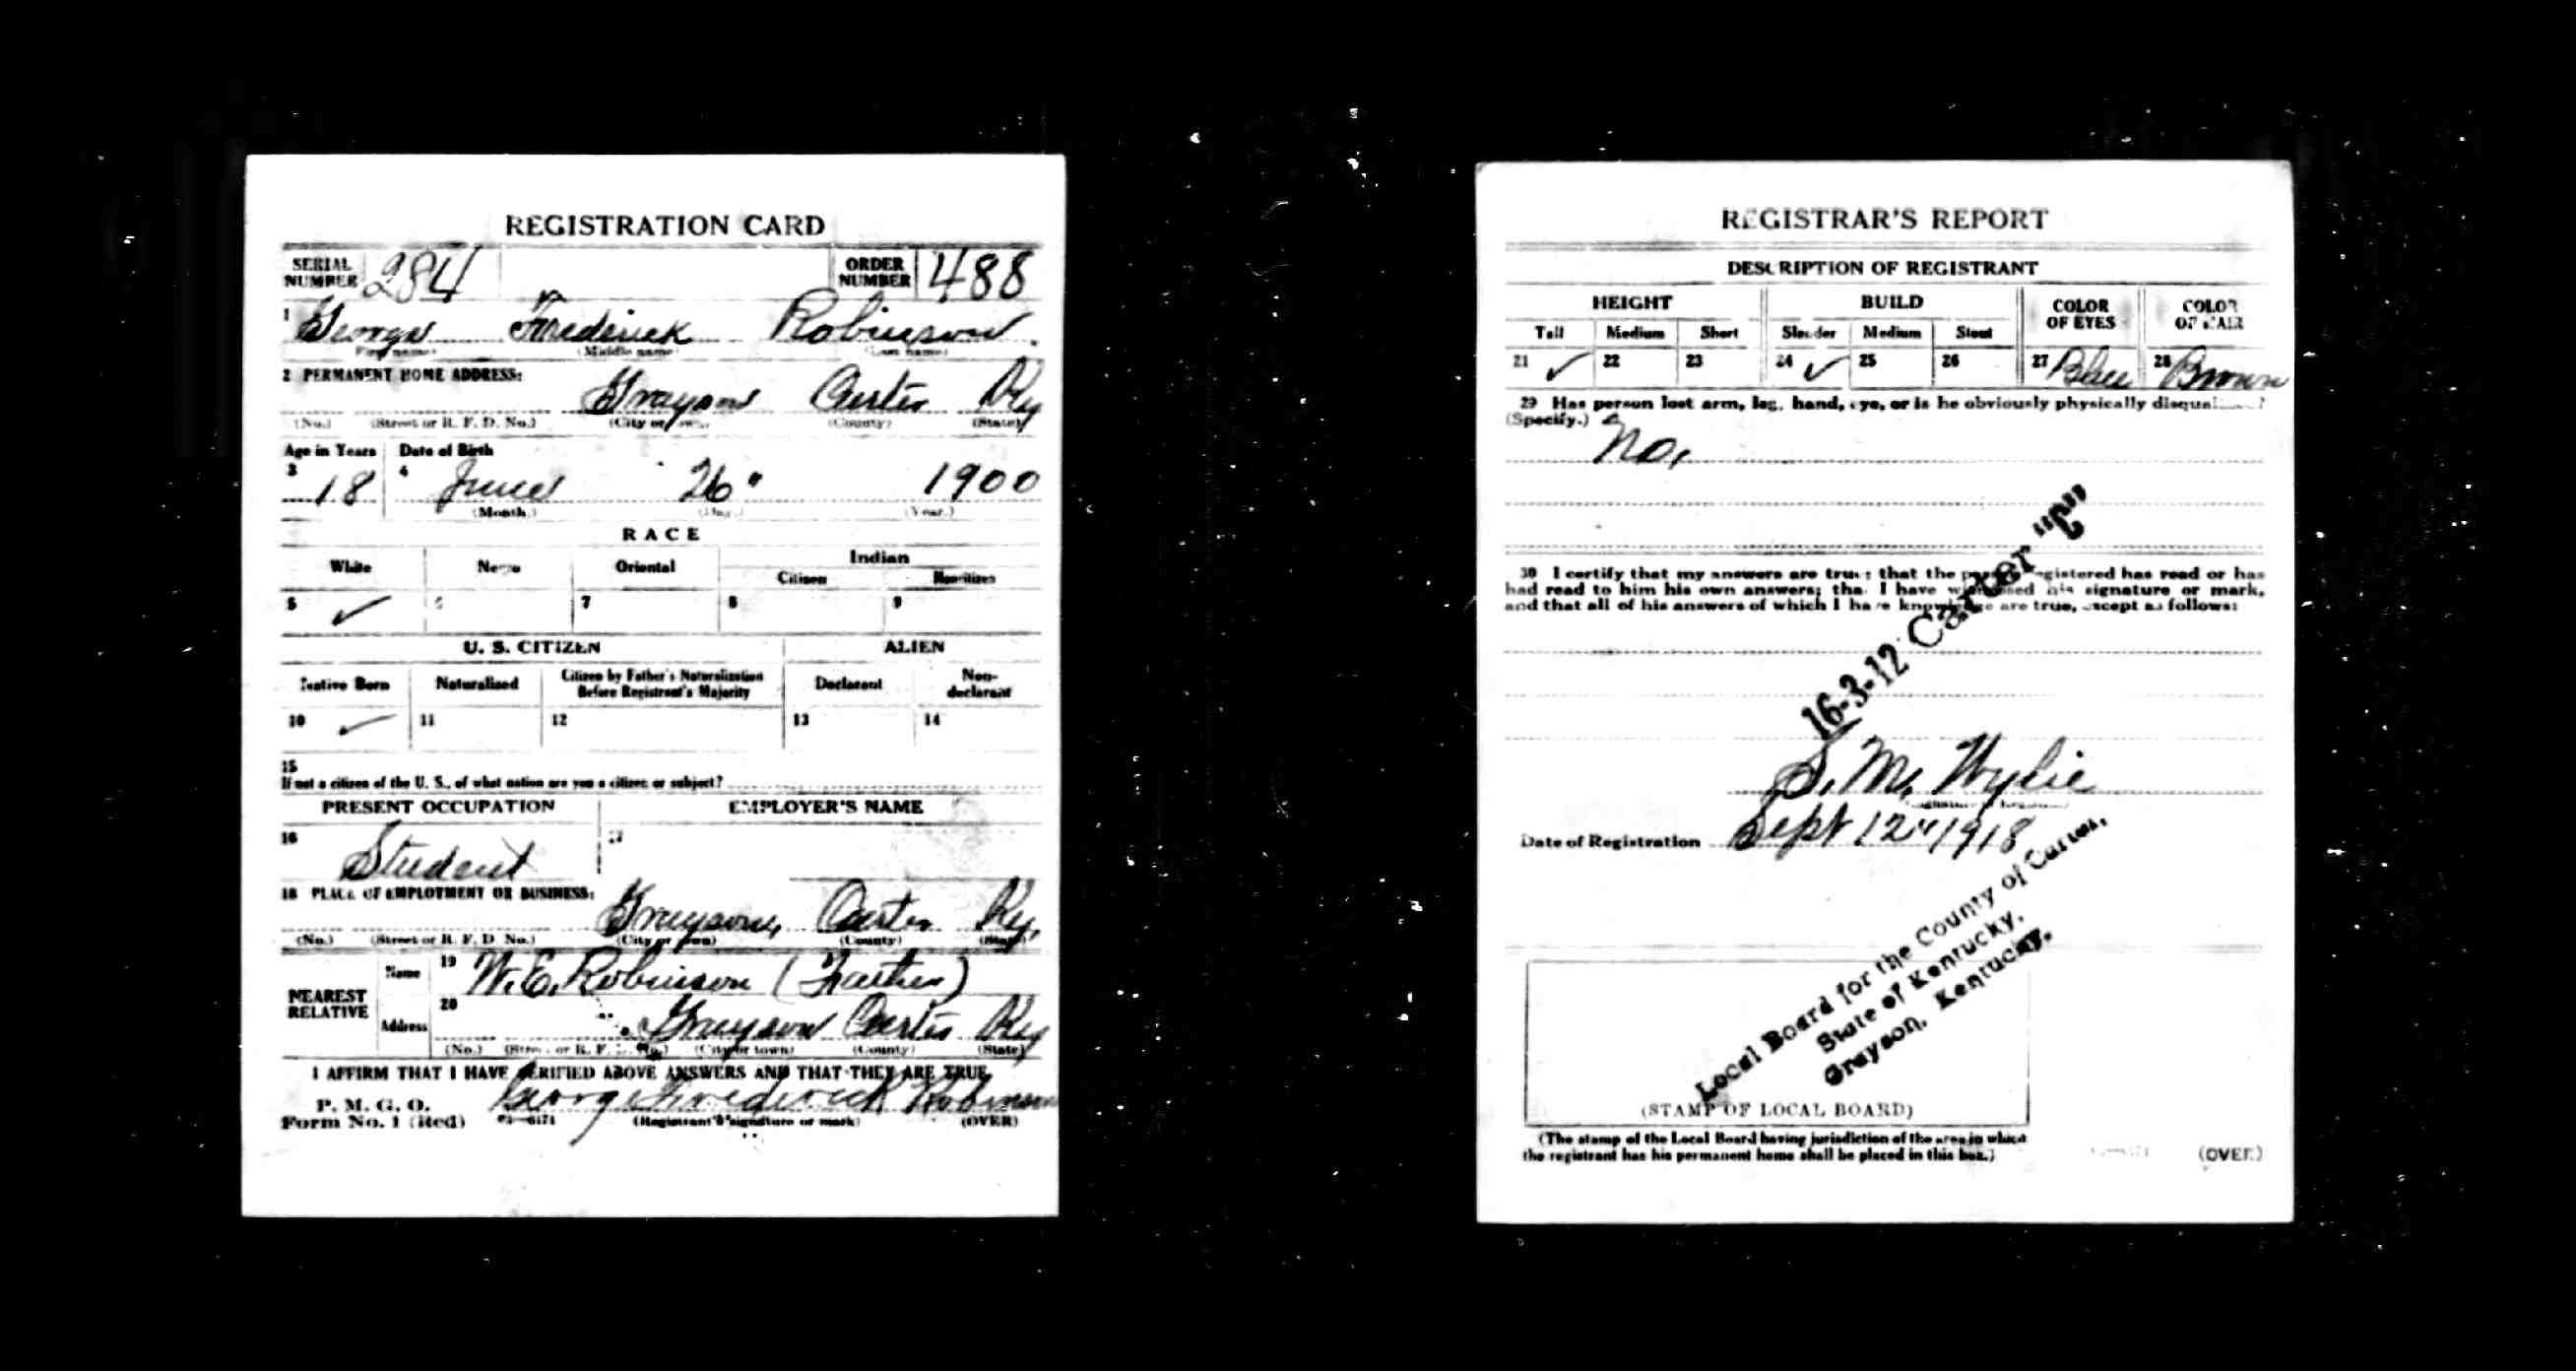 REGISTRATION CARD
SERIAL NUMBER 284 ORDER NUMBER 488
1 George Frederick Robinson
(First name) (Middle name) (Last name)
2 PERMANENT HOME ADDRESS:
Grayson Carter Ky
(No.) (Street or R. F. D. No.) (City or town) (County) (State)
Age in Years Date of Birth
3 18 4 June 26" 1900
(Month.) (Day.) (Year.)
RACE
White Negro Oriental Indian
Citizen Noncitizen
5 ✓ 6 7 8 9
U. S. CITIZEN ALIEN
Native Born Naturalized Citizen by Father's Naturalization Before Registrant's Majority Declarant Non-declarant
10 ✓ 11 12 13 14
15
If not a citizen of the U. S., of what nation are you a citizen or subject?
PRESENT OCCUPATION EMPLOYER'S NAME
16 Student 17
18 PLACE OF EMPLOYMENT OR BUSINESS:
Grayson, Carter Ky.
(No.) (Street or R. F. D. No.) (City or town) (County) (State)
NEAREST RELATIVE Name 19 W. E. Robinson (Father)
Address 20 Grayson Carter Ky
(No.) (Street or R. F. D. No.) (City or town) (County) (State)
I AFFIRM THAT I HAVE VERIFIED ABOVE ANSWERS AND THAT THEY ARE TRUE
P. M. G. O. George Frederick Robinson
Form No. 1 (Red) (Registrant's signature or mark) (OVER)
REGISTRAR'S REPORT
DESCRIPTION OF REGISTRANT
HEIGHT BUILD COLOR OF EYES COLOR OF HAIR
Tall Medium Short Slender Medium Stout
21 ✓ 22 23 24 ✓ 25 26 27 Blue 28 Brown
29 Has person lost arm, leg, hand, eye, or is he obviously physically disqualified?
(Specify.) No.
30 I certify that my answers are true; that the person registered has read or has
had read to him his own answers; that I have witnessed his signature or mark,
and that all of his answers of which I have knowledge are true, except as follows:
16-3-12 Carter "C"
S. M. Wylie
(Signature of Registrar)
Date of Registration Sept 12" 1918
Local Board for the County of Carter,
State of Kentucky,
Grayson, Kentucky.
(STAMP OF LOCAL BOARD)
(The stamp of the Local Board having jurisdiction of the area in which
the registrant has his permanent home shall be placed in this box.)
(OVER)